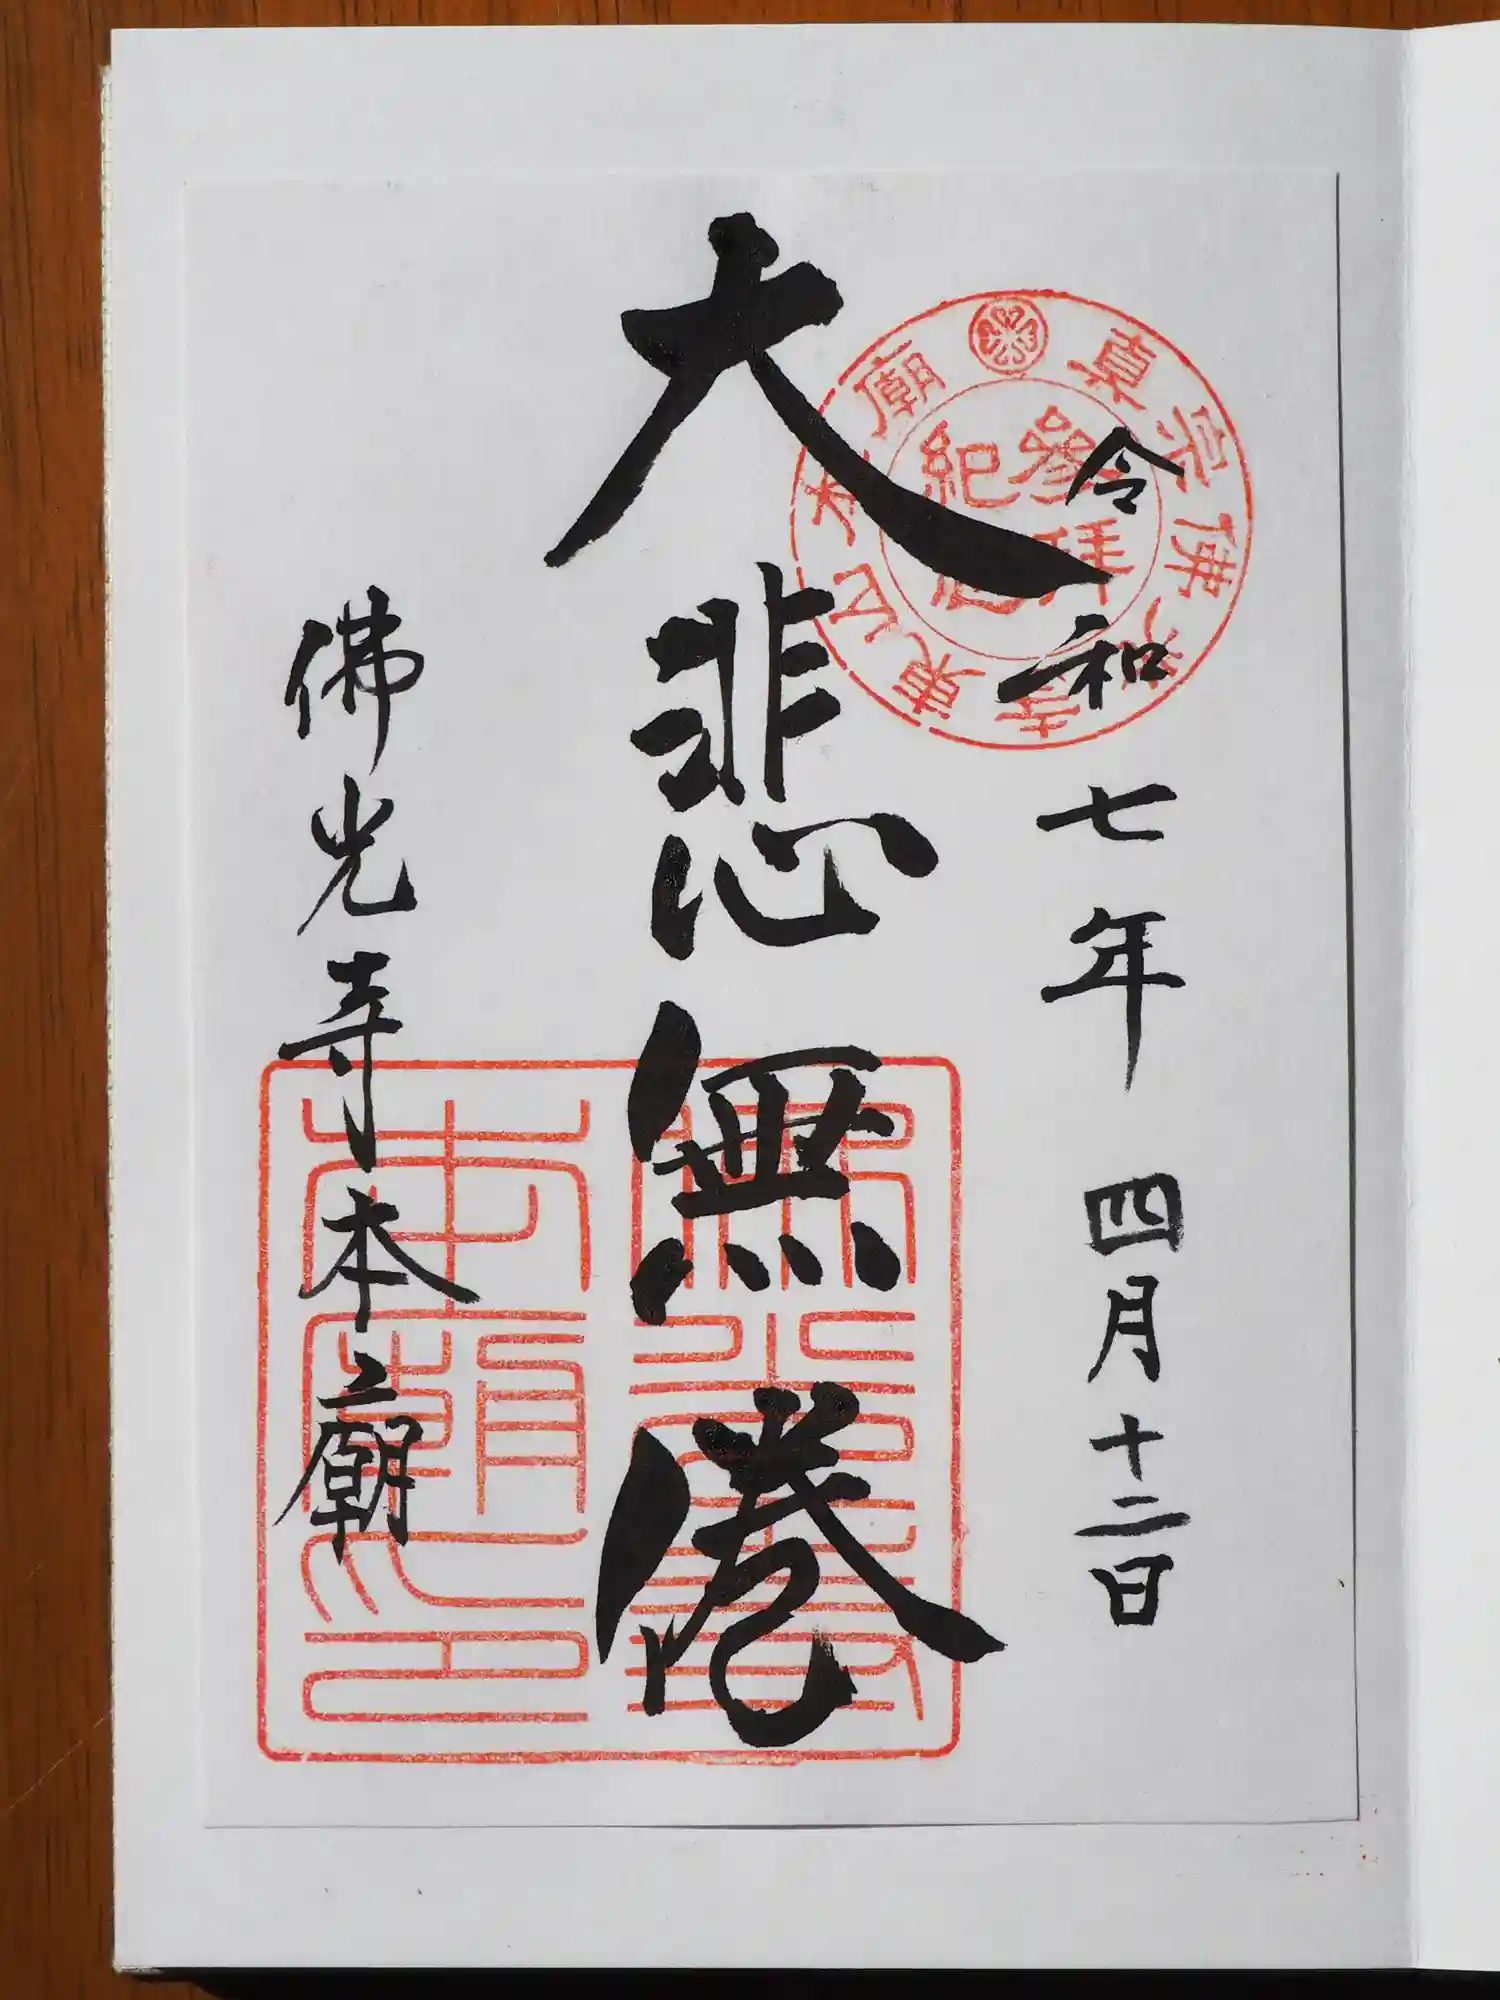 令和七年 四月十二日
大悲無倦
佛光寺本廟
真宗佛光寺東山本廟
参拜紀念
佛光寺本廟印